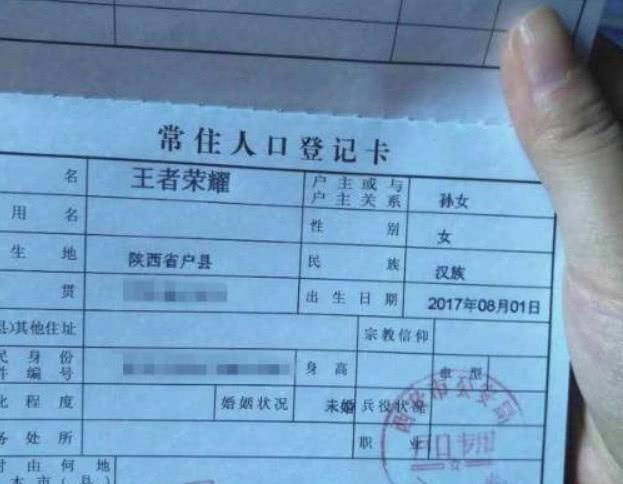 常住人口登记卡
名 王者荣耀 户主或与户主关系 孙女
用名 性别 女
生地 陕西省户县 民族 汉族
贯 出生日期 2017年08月01日
县)其他住址 宗教信仰
民身份
件编号 身高 血型
化程度 婚姻状况 未婚 兵役状况
务处所 职业
时由何地
本市(县)
西安市公安局
户口专用